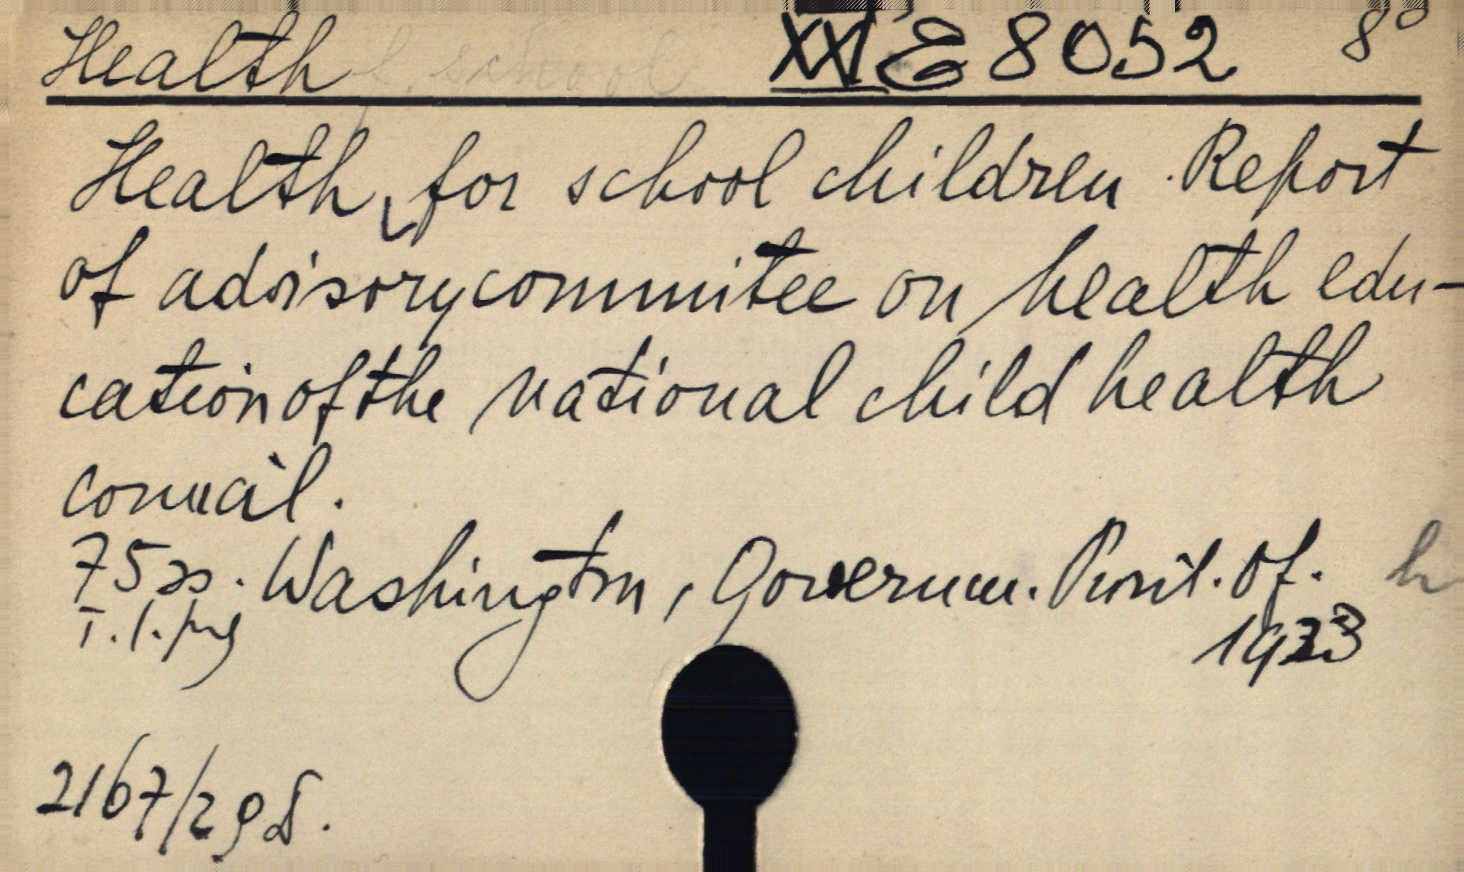 Health f. school XXI E 8052 8°
Health for school children. Report
of advisory commitee on health edu-
cation of the national child health
council.
75 ss. Washington, Governm. Print. Of.
1923
2167/29 D.